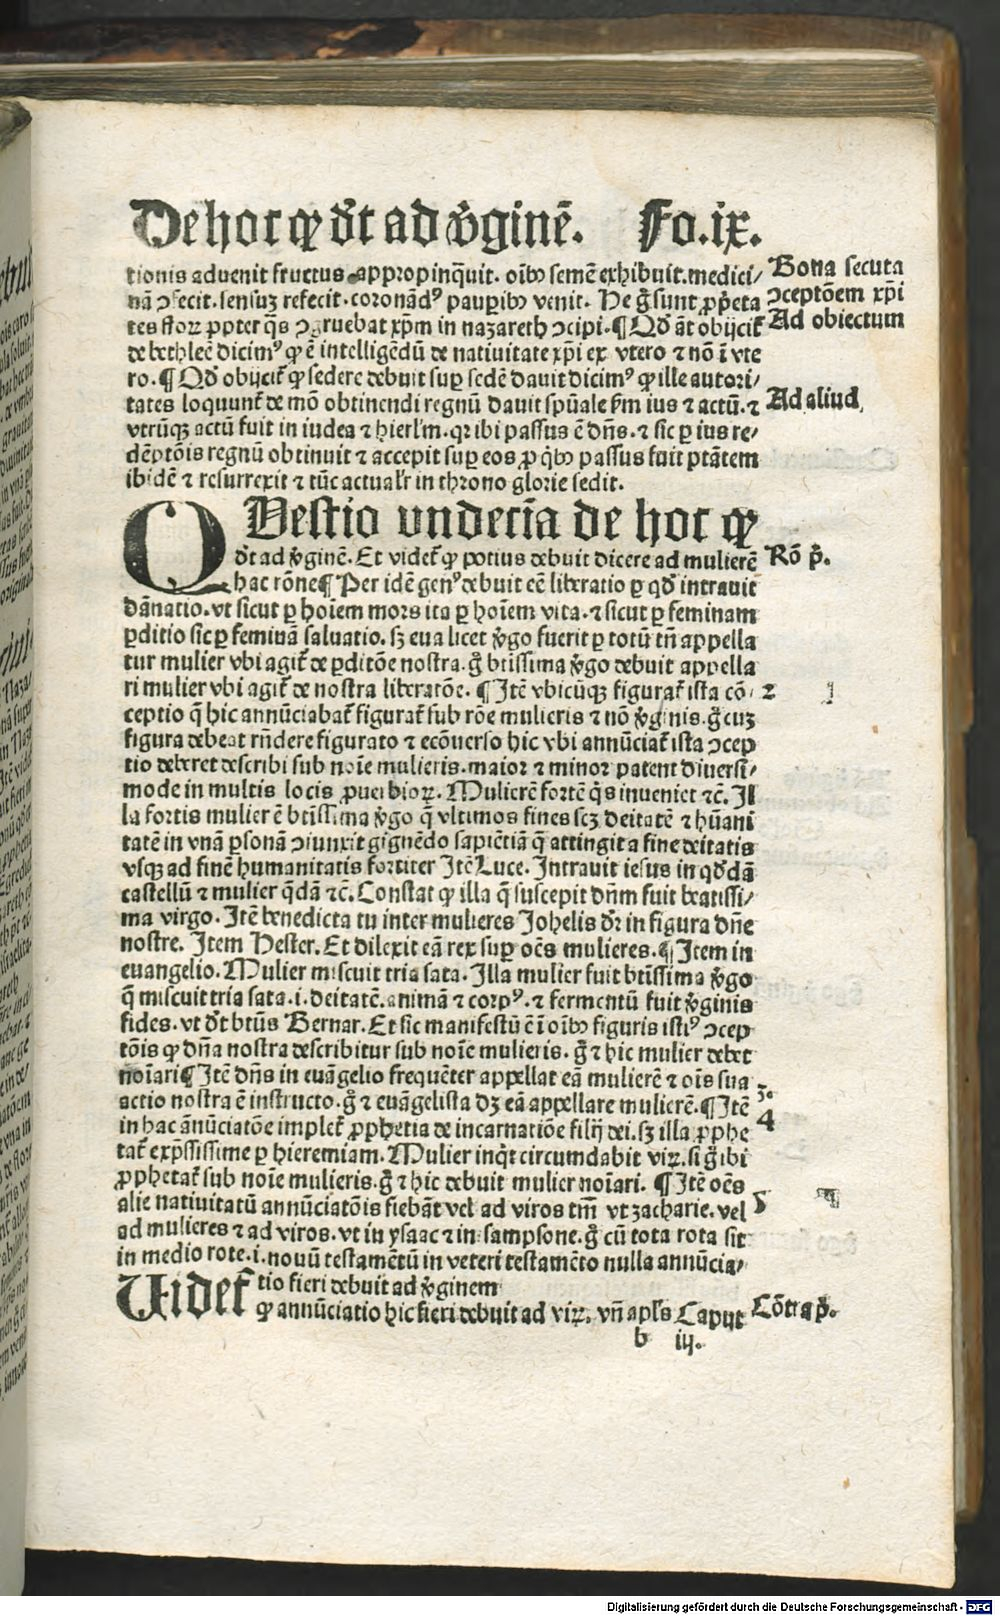 De hoc ꝙ dr̄t ad v̄ginē. Fo.ix.
tionis aduenit fructus appropinq̄uit. oīb9 semē exhibuit. medici/
nā ꝯfecit. sensuꝫ refecit. coronādꝰ pauꝑib9 venit. He g̊ sunt ꝓp̄eta
tes floꝝ ꝓpter q̄s ꝯgruebat xp̄m in nazareth ꝯcipi. ¶ Qd̄ āt obijcit̄
de bethleē dicimꝰ ꝙ ē intelligēdū de natiuitate xp̄i ex vtero ⁊ nō ī vte
ro. ¶ Qd̄ obijcit̄ ꝙ sedere debuit suꝑ sedē dauit dicimꝰ ꝙ ille autori/
tates loquunt̄ de mō obtinendi regnū dauit spūale ẜm ius ⁊ actū. ⁊
vtrūqꝫ actū fuit in iudea ⁊ hierl'm. qꝛ ibi passus ē dn̄s. ⁊ sic ꝑ ius re/
dēptōis regnū obtinuit ⁊ accepit suꝑ eos ꝓ q̄ib9 passus fuit ptātem
ibidē ⁊ resurrexit ⁊ tūc actual'r in throno glorie sedit.
QVestio vndecīa de hoc ꝙ
dr̄t ad v̄ginē. Et videt̄ ꝙ potius debuit dicere ad mulierē
hac rōne ¶ Per idē genꝰ debuit eē liberatio ꝑ qd̄ intrauit
dānatio. vt sicut ꝑ hoīem mors ita ꝑ hoīem vita. ⁊ sicut ꝑ feminam
ꝑditio sic ꝑ feminā saluatio. sꝫ eua licet v̄go fuerit ꝑ totū tn̄ appella
tur mulier vbi agit̄ de ꝑditōe nostra. g̊ btīssima v̄go debuit appella
ri mulier vbi agit̄ de nostra liberatōe. ¶ Itē vbicūqꝫ figurat̄ ista cō/
ceptio q̄ hic annūciabat̄ figurat̄ sub rōe mulieris ⁊ nō v̄ginis. g̊ cuꝫ
figura debeat rn̄dere figurato ⁊ ecōuerso hic vbi annūciat̄ ista ꝯcep
tio deberet describi sub noīe mulieris. maior ⁊ minor patent diuersi/
mode in multis locis ꝓuerbioꝝ. Mulierē fortē q̄s inueniet ⁊c̄. Il
la fortis mulier ē btīssima v̄go q̄ vltimos fines scꝫ deitatē ⁊ hūani
tatē in vnā ꝑsonā ꝯiunxit gignēdo sapiētiā q̄ attingit a fine deitatis
vsqꝫ ad finē humanitatis fortiter Itē Luce. Intrauit iesus in qd̄dā
castellū ⁊ mulier q̄dā ⁊c̄. Constat ꝙ illa q̄ suscepit dn̄m fuit beatissi/
ma virgo. Itē benedicta tu inter mulieres Iohelis dr̄ in figura dn̄e
nostre. Item Hester. Et dilexit eā rex suꝑ oēs mulieres. ¶ Item in
euangelio. Mulier miscuit tria sata. Illa mulier fuit btīssima v̄go
q̄ miscuit tria sata. i. deitatē. animā ⁊ corpꝰ. ⁊ fermentū fuit v̄ginis
fides. vt dr̄t btūs Bernar. Et sic manifestū ē ī oīb9 figuris istiꝰ ꝯcep
tōis ꝙ dn̄a nostra describitur sub noīe mulieris. g̊ ⁊ hic mulier debet
noīari ¶ Itē dn̄s in euāgelio frequēter appellat eā mulierē ⁊ oīs sua
actio nostra ē instructo. g̊ ⁊ euāgelista dꝫ eā appellare mulierē. ¶ Itē
in hac ānūciatōe implet̄ ꝓphetia de incarnatiōe filij dei. sꝫ illa ꝓphe
tat̄ exp̄ssissime ꝑ hieremiam. Mulier inq̄t circumdabit viꝝ. si g̊ ibi
ꝓphetat̄ sub noīe mulieris. g̊ ⁊ hic debuit mulier noīari. ¶ Itē oēs
alie natiuitatū annūciatōis fiebāt vel ad viros tm̄ vt zacharie. vel
ad mulieres ⁊ ad viros. vt in ysaac ⁊ in sampsone. g̊ cū tota rota sit
in medio rote. i. nouū testamētū in veteri testamēto nulla annūcia/
tio fieri debuit ad v̄ginem
Uidet̄ ꝙ annūciatio hic fieri debuit ad viꝝ. vn̄ apl's Caput
b iij.
Bona secuta
ꝯceptōem xp̄i
Ad obiectum
Ad aliud
Rō p̄.
2
3.
4
5
Cōtra p̄.
Digitalisierung gefördert durch die Deutsche Forschungsgemeinschaft - DFG